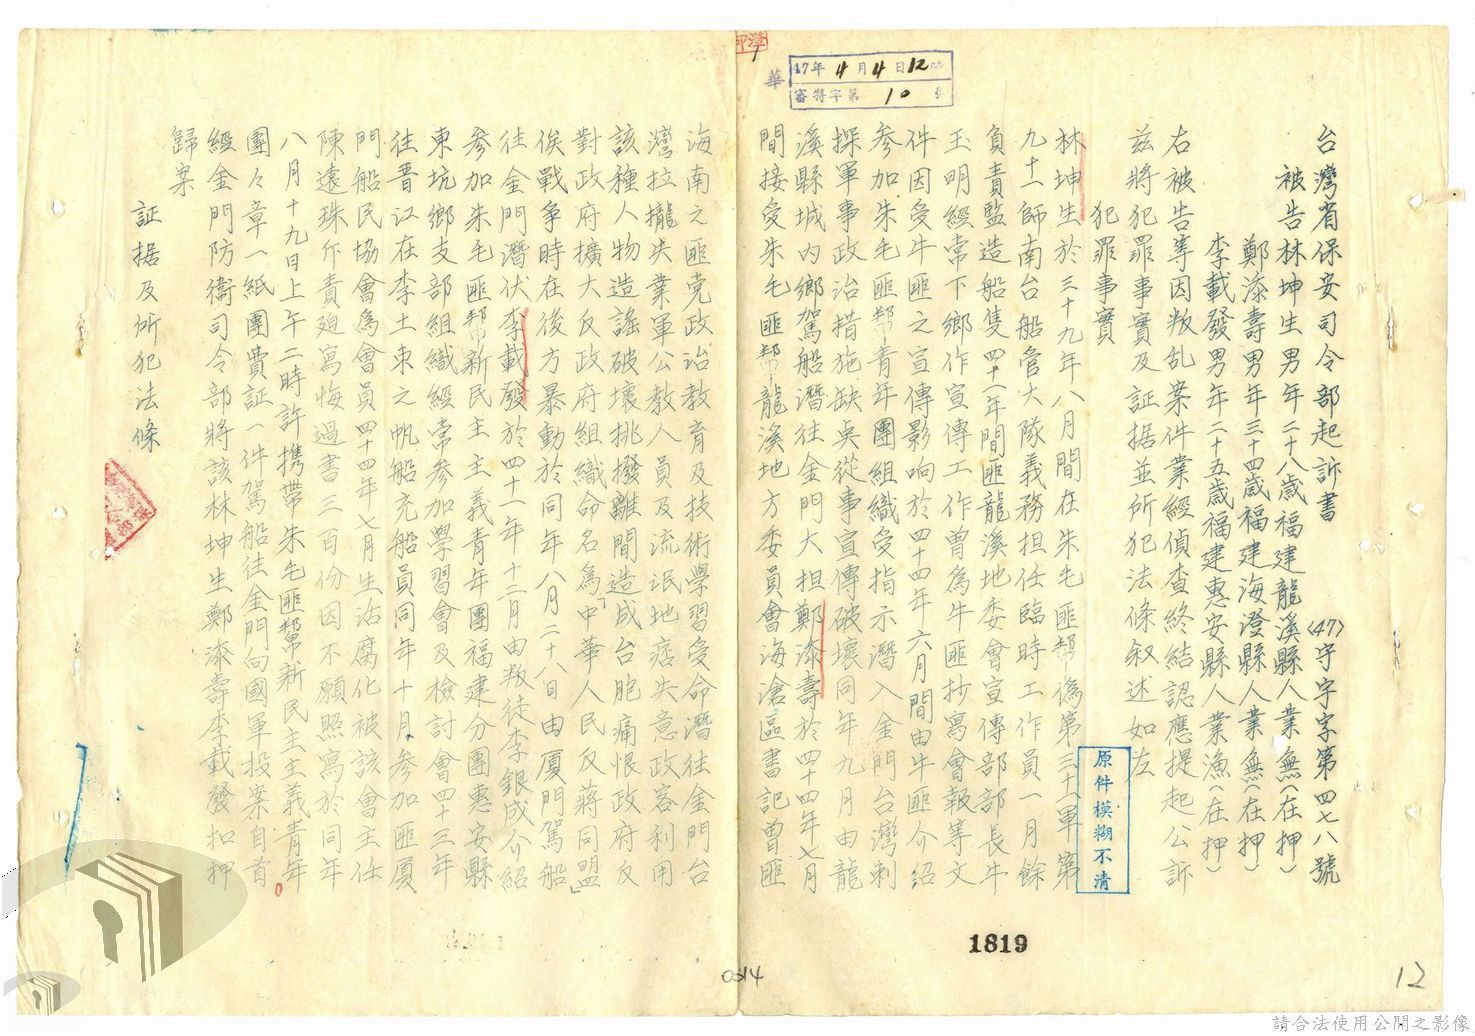 台灣省保安司令部起訴書
(47)宇字字第四七八號
被告林坤生男年二十八歲福建龍溪縣人業無(在押)
鄭漆壽男年三十四歲福建海澄縣人業無(在押)
李載發男年二十五歲福建惠安縣人業漁(在押)
右被告等因叛乱案件業經偵查終結認應提起公訴
茲將犯罪事實及証据並所犯法條叙述如左
犯罪事實
林坤生於三十九年八月間在朱毛匪幫偽第三十一軍第
九十一師南台船管大隊義務担任臨時工作員一月餘
負責監造船隻四十一年間匪龍溪地委會宣傳部部長牛
玉明經常下鄉作宣傳工作曾為牛匪抄寫會報等文
件因受牛匪之宣傳影响於四十四年六月間由牛匪介紹
參加朱毛匪幫青年團組織受指示潛入金門台灣刺
探軍事政治措施缺矣從事宣傳破壞同年九月由龍
溪縣城內鄉駕船潛往金門大担鄭漆壽於四十四年七月
間接受朱毛匪幫龍溪地方委員會海滄區書記曾匪
海南之匪党政治教育及技術學習受命潛往金門台
灣拉攏失業軍公教人員及流氓地痞失意政客利用
該種人物造謠破壞挑撥離間造成台胞痛恨政府反
對政府擴大反政府組織命名為「中華人民反蔣同盟」
俟戰爭時在後方暴動於同年八月二十八日由廈門駕船
往金門潛伏李載發於四十一年十二月由叛徒李銀成介紹
參加朱毛匪幫新民主主義青年團福建分團惠安縣
東坑鄉支部組織經常參加學習會及檢討會四十三年
往晋江在李土束之帆船充船員同年十月參加匪廈
門船民協會為會員四十四年七月生活腐化被該會主任
陳遠珠斥責廹寫悔過書三百份因不願照寫於同年
八月十九日上午二時許携帶朱毛匪幫新民主主義青年
團々章一紙團費証一件駕船往金門向國軍投案自首
經金門防衛司令部將該林坤生鄭漆壽李載發扣押
歸案
証据及所犯法條
47年4月4日12時
審特字第10號
華
原件模糊不清
1819
0314
12
請合法使用公開之影像